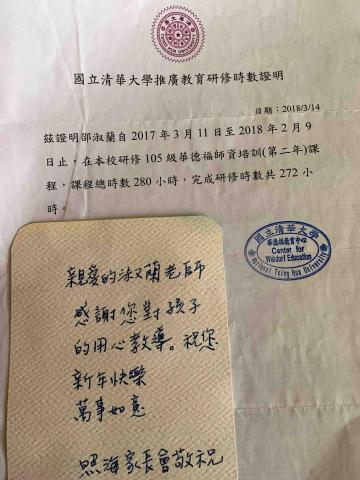 國立清華大學推廣教育研修時數證明
日期：2018/3/14
茲證明邵淑蘭自 2017 年 3 月 11 日至 2018 年 2 月 9
日止，在本校研修 105 級華德福師資培訓(第二年)課
程，課程總時數 280 小時，完成研修時數共 272 小
時。
國立清華大學
華德福教育中心
Center for
Waldorf Education
National Tsing Hua University
親愛的淑蘭老師
感謝您對孩子
的用心教導。祝您
新年快樂
萬事如意
照海家長會敬祝